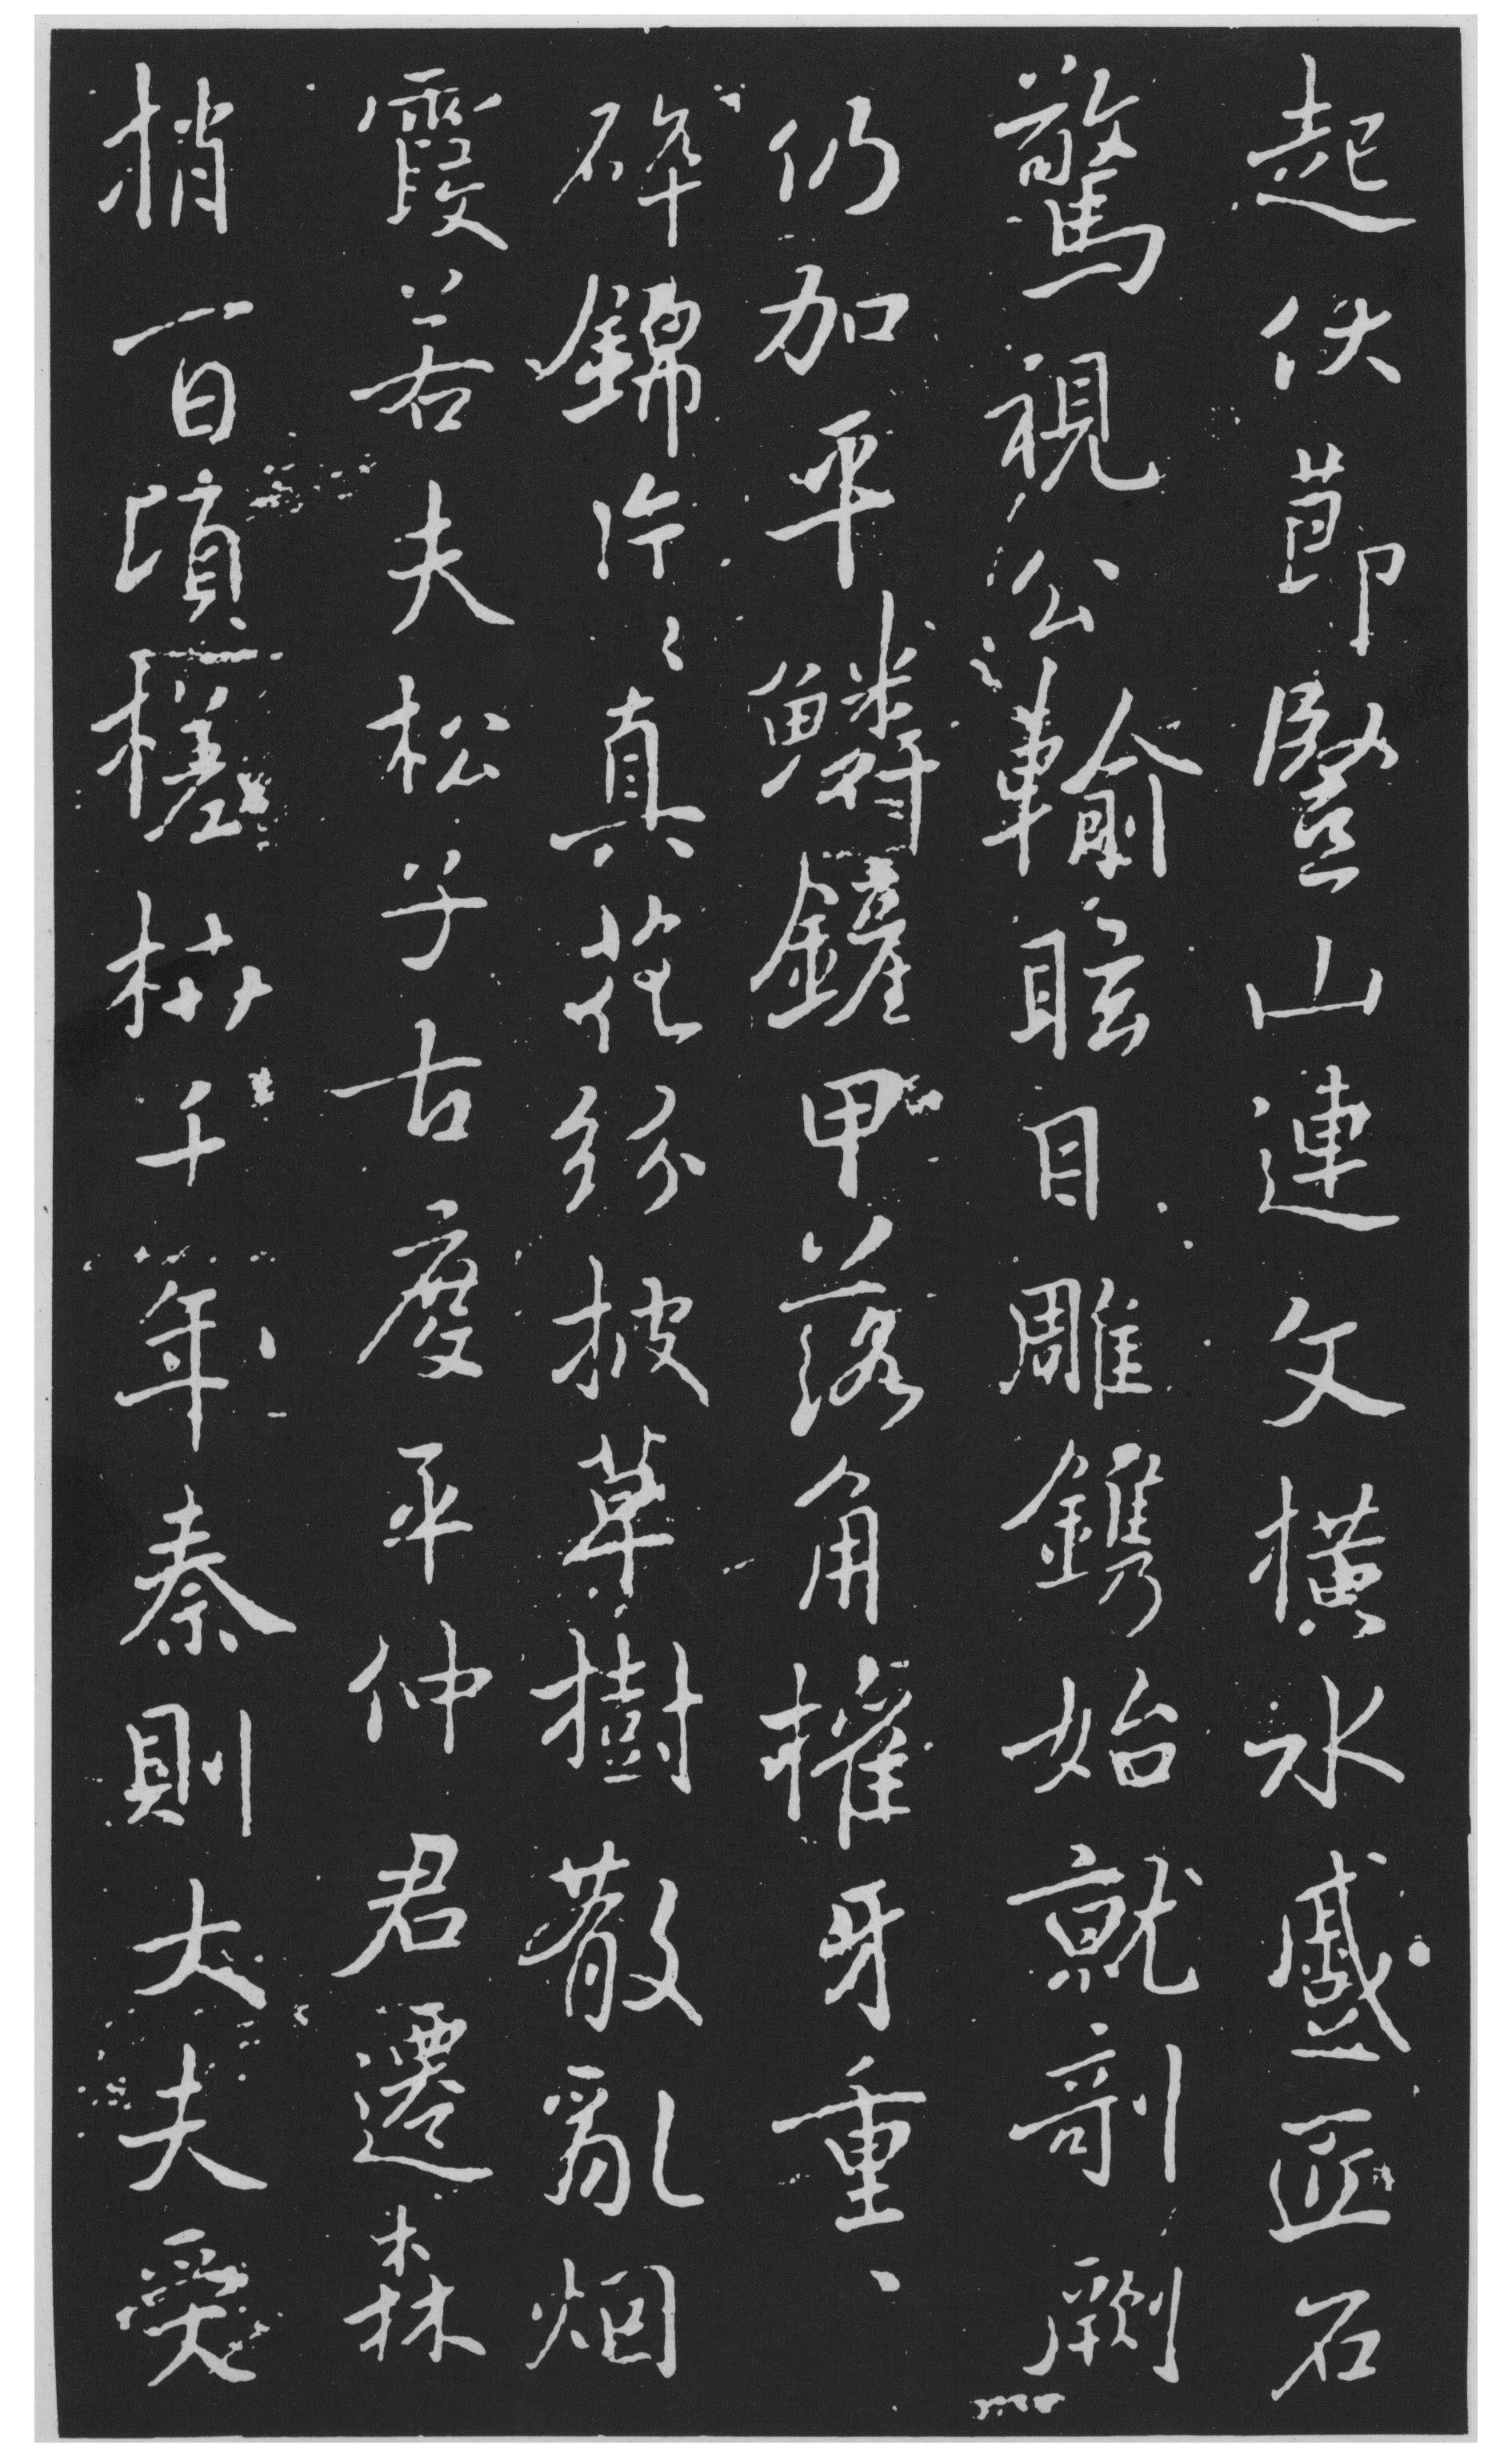 起伏莭豎山連文橫水蹙匠石
驚視公輸眩目雕鐫始就剞劂
仍加平鱗鏟甲落角摧牙重、
碎錦片〻真花紛披草樹散亂烟
霞若夫松子古度平仲君遷森
梢百頃槎枿千年秦則大夫受